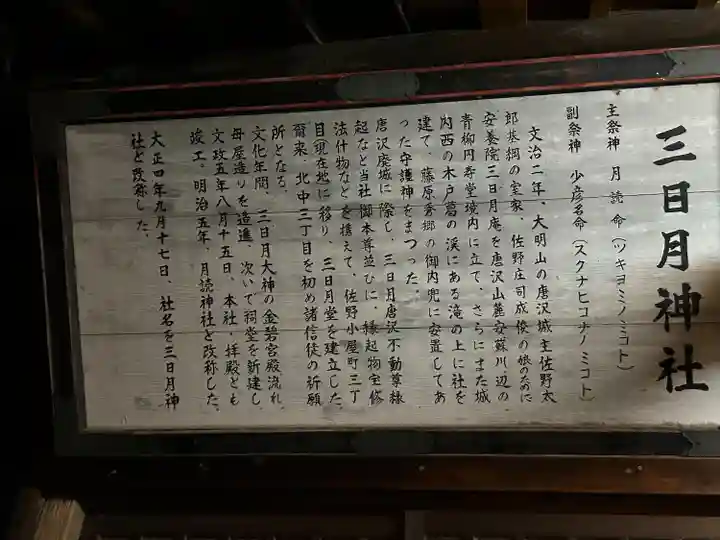 三日月神社
主祭神　月読命（ツキヨミノミコト）
副祭神　少彦名命（スクナヒコナノミコト）
文治二年、大明山の唐沢城主佐野太
郎基綱の室家、佐野庄司成俊の娘のために
安養院三日月庵を唐沢山麓安蘇川辺の
青柳円寿堂境内に立て、さらにまた城
内西の木戸葛の渓にある滝の上に社を
建て、藤原秀郷の御内兜に安置してあ
った守護神をまつった。
唐沢廃城に際し、三日月唐沢不動尊縁
起など当社御本尊並びに、縁起物宝修
法什物などを携えて、佐野小屋町三丁
目（現在地に移り、三日月堂を建立した。
爾来、北中三丁目を初め諸信徒の祈願
所となる。
文化年間、三日月大神の金碧宮殿流れ、
母屋造りを造進、次いで祠堂を新建し
文政五年八月十五日、本社、拝殿とも
竣工。明治五年、月読神社と改称した。
大正四年九月十七日、社名を三日月神
社と改称した。